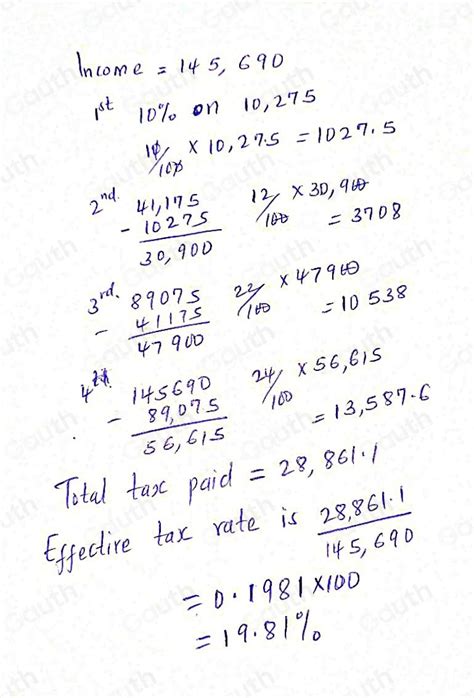 Income = 145,690
1st 10% on 10,275
10/100 × 10,275 = 1027.5
2nd. 41,175 12/100 × 30,900
- 10275 = 3708
30,900
3rd. 89075 22/100 × 47900
- 41175 = 10538
47900
4th. 145690 24/100 × 56,615
- 89,075 = 13,587.6
56,615
Total tax paid = 28,861.1
Effective tax rate is 28,861.1/145,690
= 0.1981×100
= 19.81%
Gauth